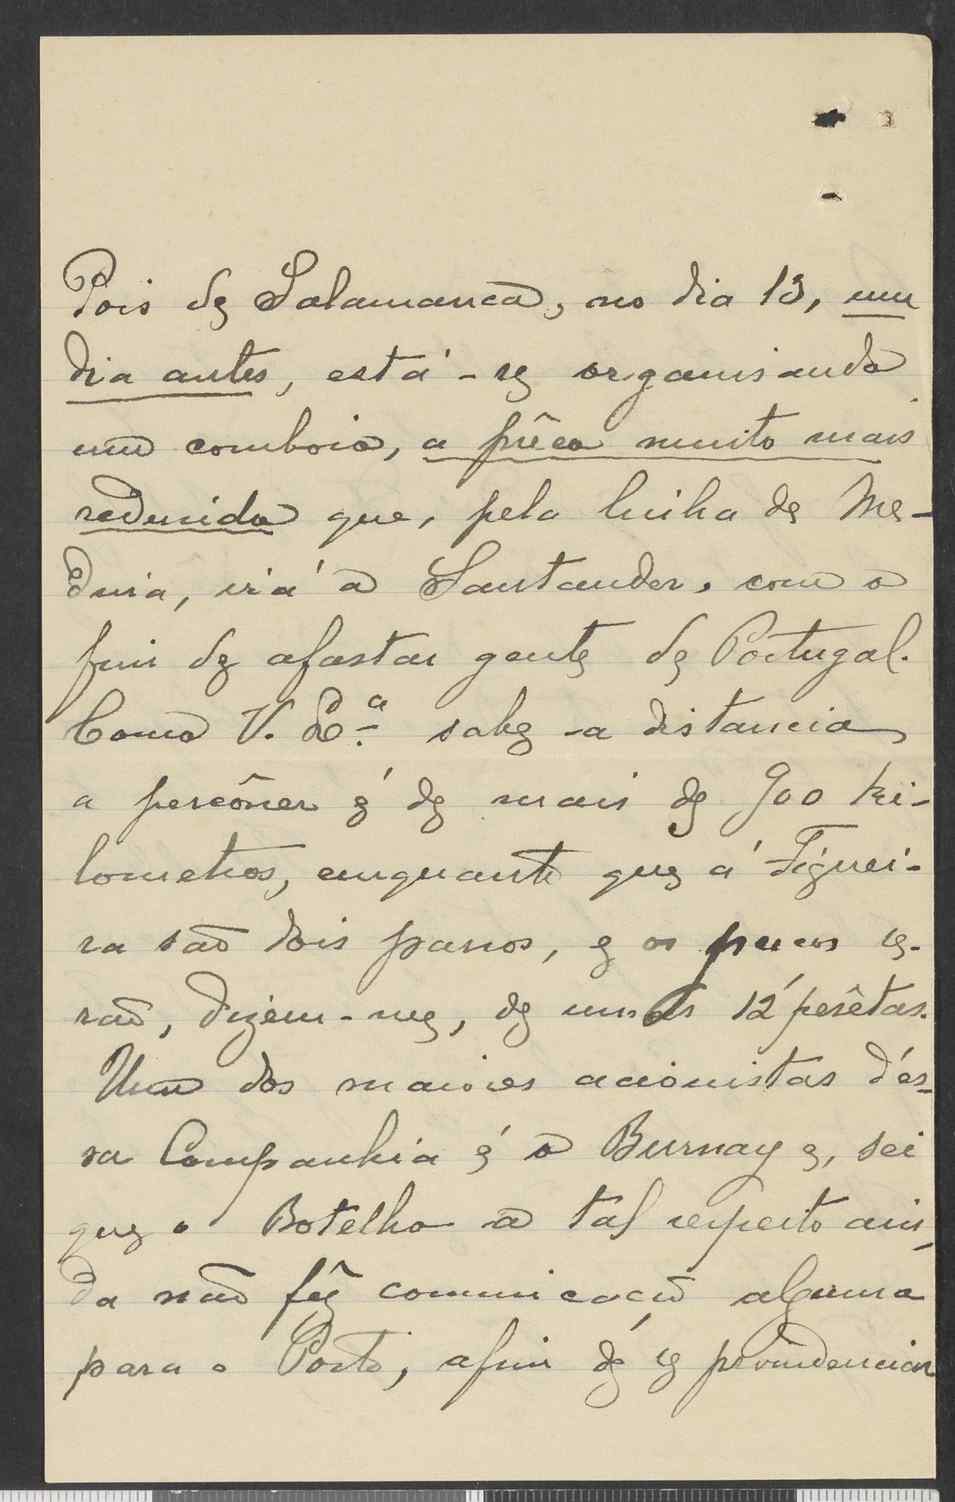 Pois de Salamanca, no dia 13, um
dia antes, está-se organisando
um comboio, a prêço muito mais
redusido que, pela linha de Me-
dina, irá a Santander, com o
fim de afastar gente de Portugal.
Como V. Ex.ª sabe a distancia
a percôrrer é de mais de 900 ki-
lometros, emquanto que á Figuei-
ra são dois passos, e os precos se-
rão, dizem-me, de umas 12 pesêtas.
Um dos maiores accionistas d'es-
sa Companhia é o Burnay e, sei
que o Botelho a tal respeito ain-
da não fêz communicação alguma
para o Porto, afim de se providenciar